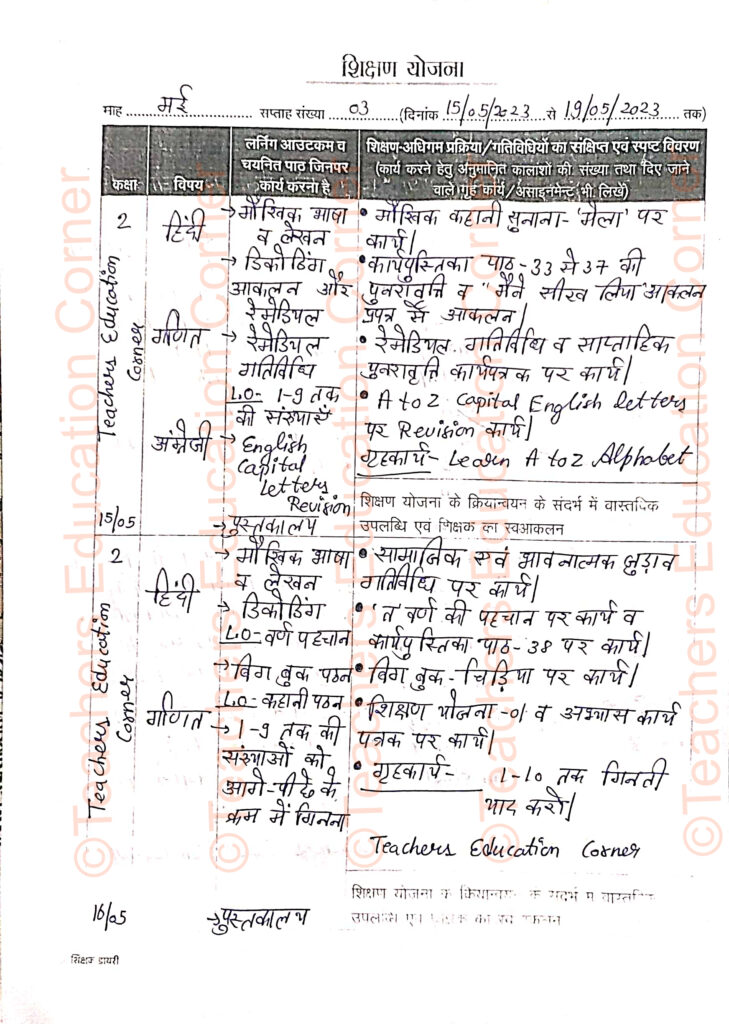 शिक्षण योजना
माह मई सप्ताह संख्या 03 (दिनांक 15/05/2023 से 19/05/2023 तक)
कक्षा
विषय
लर्निंग आउटकम व
चयनित पाठ जिनपर
कार्य करना है
शिक्षण-अधिगम प्रक्रिया/गतिविधियों का संक्षिप्त एवं स्पष्ट विवरण
(कार्य करने हेतु अनुमानित कालांशों की संख्या तथा दिए जाने
वाले गृह कार्य/असाइनमेंट भी लिखें)
2
हिंदी
→ मौखिक भाषा
व लेखन
→ डिकोडिंग
आकलन और
रेमेडियल
• मौखिक कहानी सुनाना- 'मेला' पर
कार्य।
• कार्यपुस्तिका पाठ-33 से 37 की
पुनरावृत्ति व "मैंने सीख लिया" आकलन
प्रपत्र से आकलन।
गणित
→ रेमेडियल
गतिविधि
L.O- 1-9 तक
की संख्याएँ
• रेमेडियल गतिविधि व साप्ताहिक
पुनरावृत्ति कार्यपत्रक पर कार्य।
अंग्रेजी
→ English
Capital
Letters
Revision
• A to Z Capital English Letters
पर Revision कार्य।
गृहकार्य- Learn A to Z Alphabet
Teachers Education
Corner
15/05
→ पुस्तकालय
शिक्षण योजना के क्रियान्वयन के संदर्भ में वास्तविक
उपलब्धि एवं शिक्षक का स्वआकलन
2
हिंदी
→ मौखिक भाषा
व लेखन
→ डिकोडिंग
L.O- वर्ण पहचान
→ बिग बुक पठन
L.O- कहानी पठन
• सामाजिक एवं भावनात्मक जुड़ाव
गतिविधि पर कार्य।
• 'त' वर्ण की पहचान पर कार्य व
कार्यपुस्तिका पाठ-38 पर कार्य।
• बिग बुक- चिड़िया पर कार्य।
गणित
→ 1-9 तक की
संख्याओं को
आगे-पीछे के
क्रम में गिनना
• शिक्षण योजना-01 व अभ्यास कार्य
पत्रक पर कार्य।
• गृहकार्य- 1-10 तक गिनती
याद करो।
Teachers Education Corner
Teachers Education
Corner
16/05
→ पुस्तकालय
शिक्षण योजना के क्रियान्वयन के संदर्भ में वास्तविक
उपलब्धि एवं शिक्षक का स्वआकलन
शिक्षक डायरी
©Teachers Education Corner
©Teachers Education Corner
©Teachers Education Corner
©Teachers Education Corner